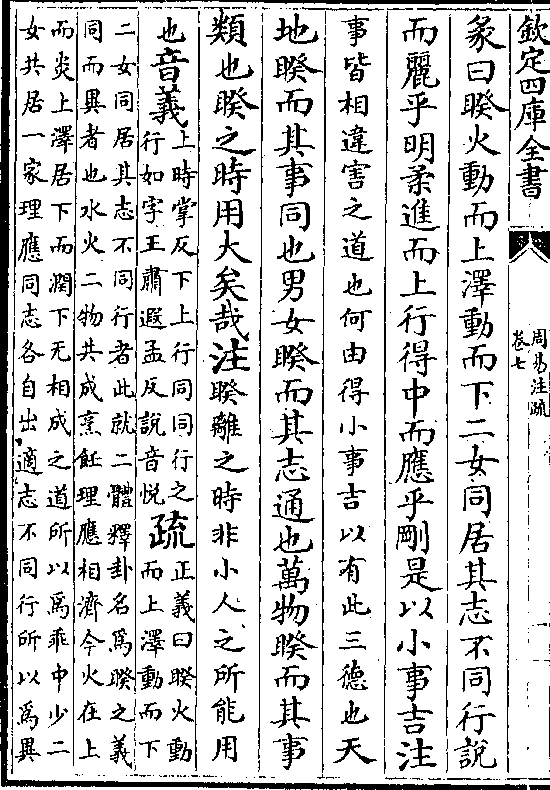 欽定四庫全書
周易注疏
卷七
彖曰睽火動而上澤動而下二女同居其志不同行説
而麗乎明柔進而上行得中而應乎剛是以小事吉注
事皆相違害之道也何由得小事吉以有此三德也天
地睽而其事同也男女睽而其志通也萬物睽而其事
類也睽之時用大矣哉注睽離之時非小人之所能用
也音義上時掌反下上行同同行之
行如字王肅遐孟反説音悦疏正義曰睽火動
而上澤動而下
二女同居其志不同行者此就二體釋卦名為睽之義
同而異者也水火二物共成烹飪理應相濟今火在上
而炎上澤居下而潤下无相成之道所以為乖中少二
女共居一家理應同志各自出適志不同行所以為異